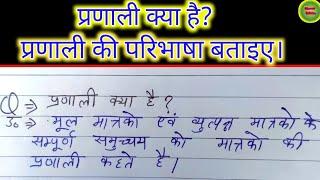 प्रणाली क्या है?
प्रणाली की परिभाषा बताइए।
Q ⇒ प्रणाली क्या है ?
उ० ⇒ मूल मात्रको एवं व्युत्पन्न मात्रको के
सम्पूर्ण समुच्चय को मात्रको की
प्रणाली कहते है।